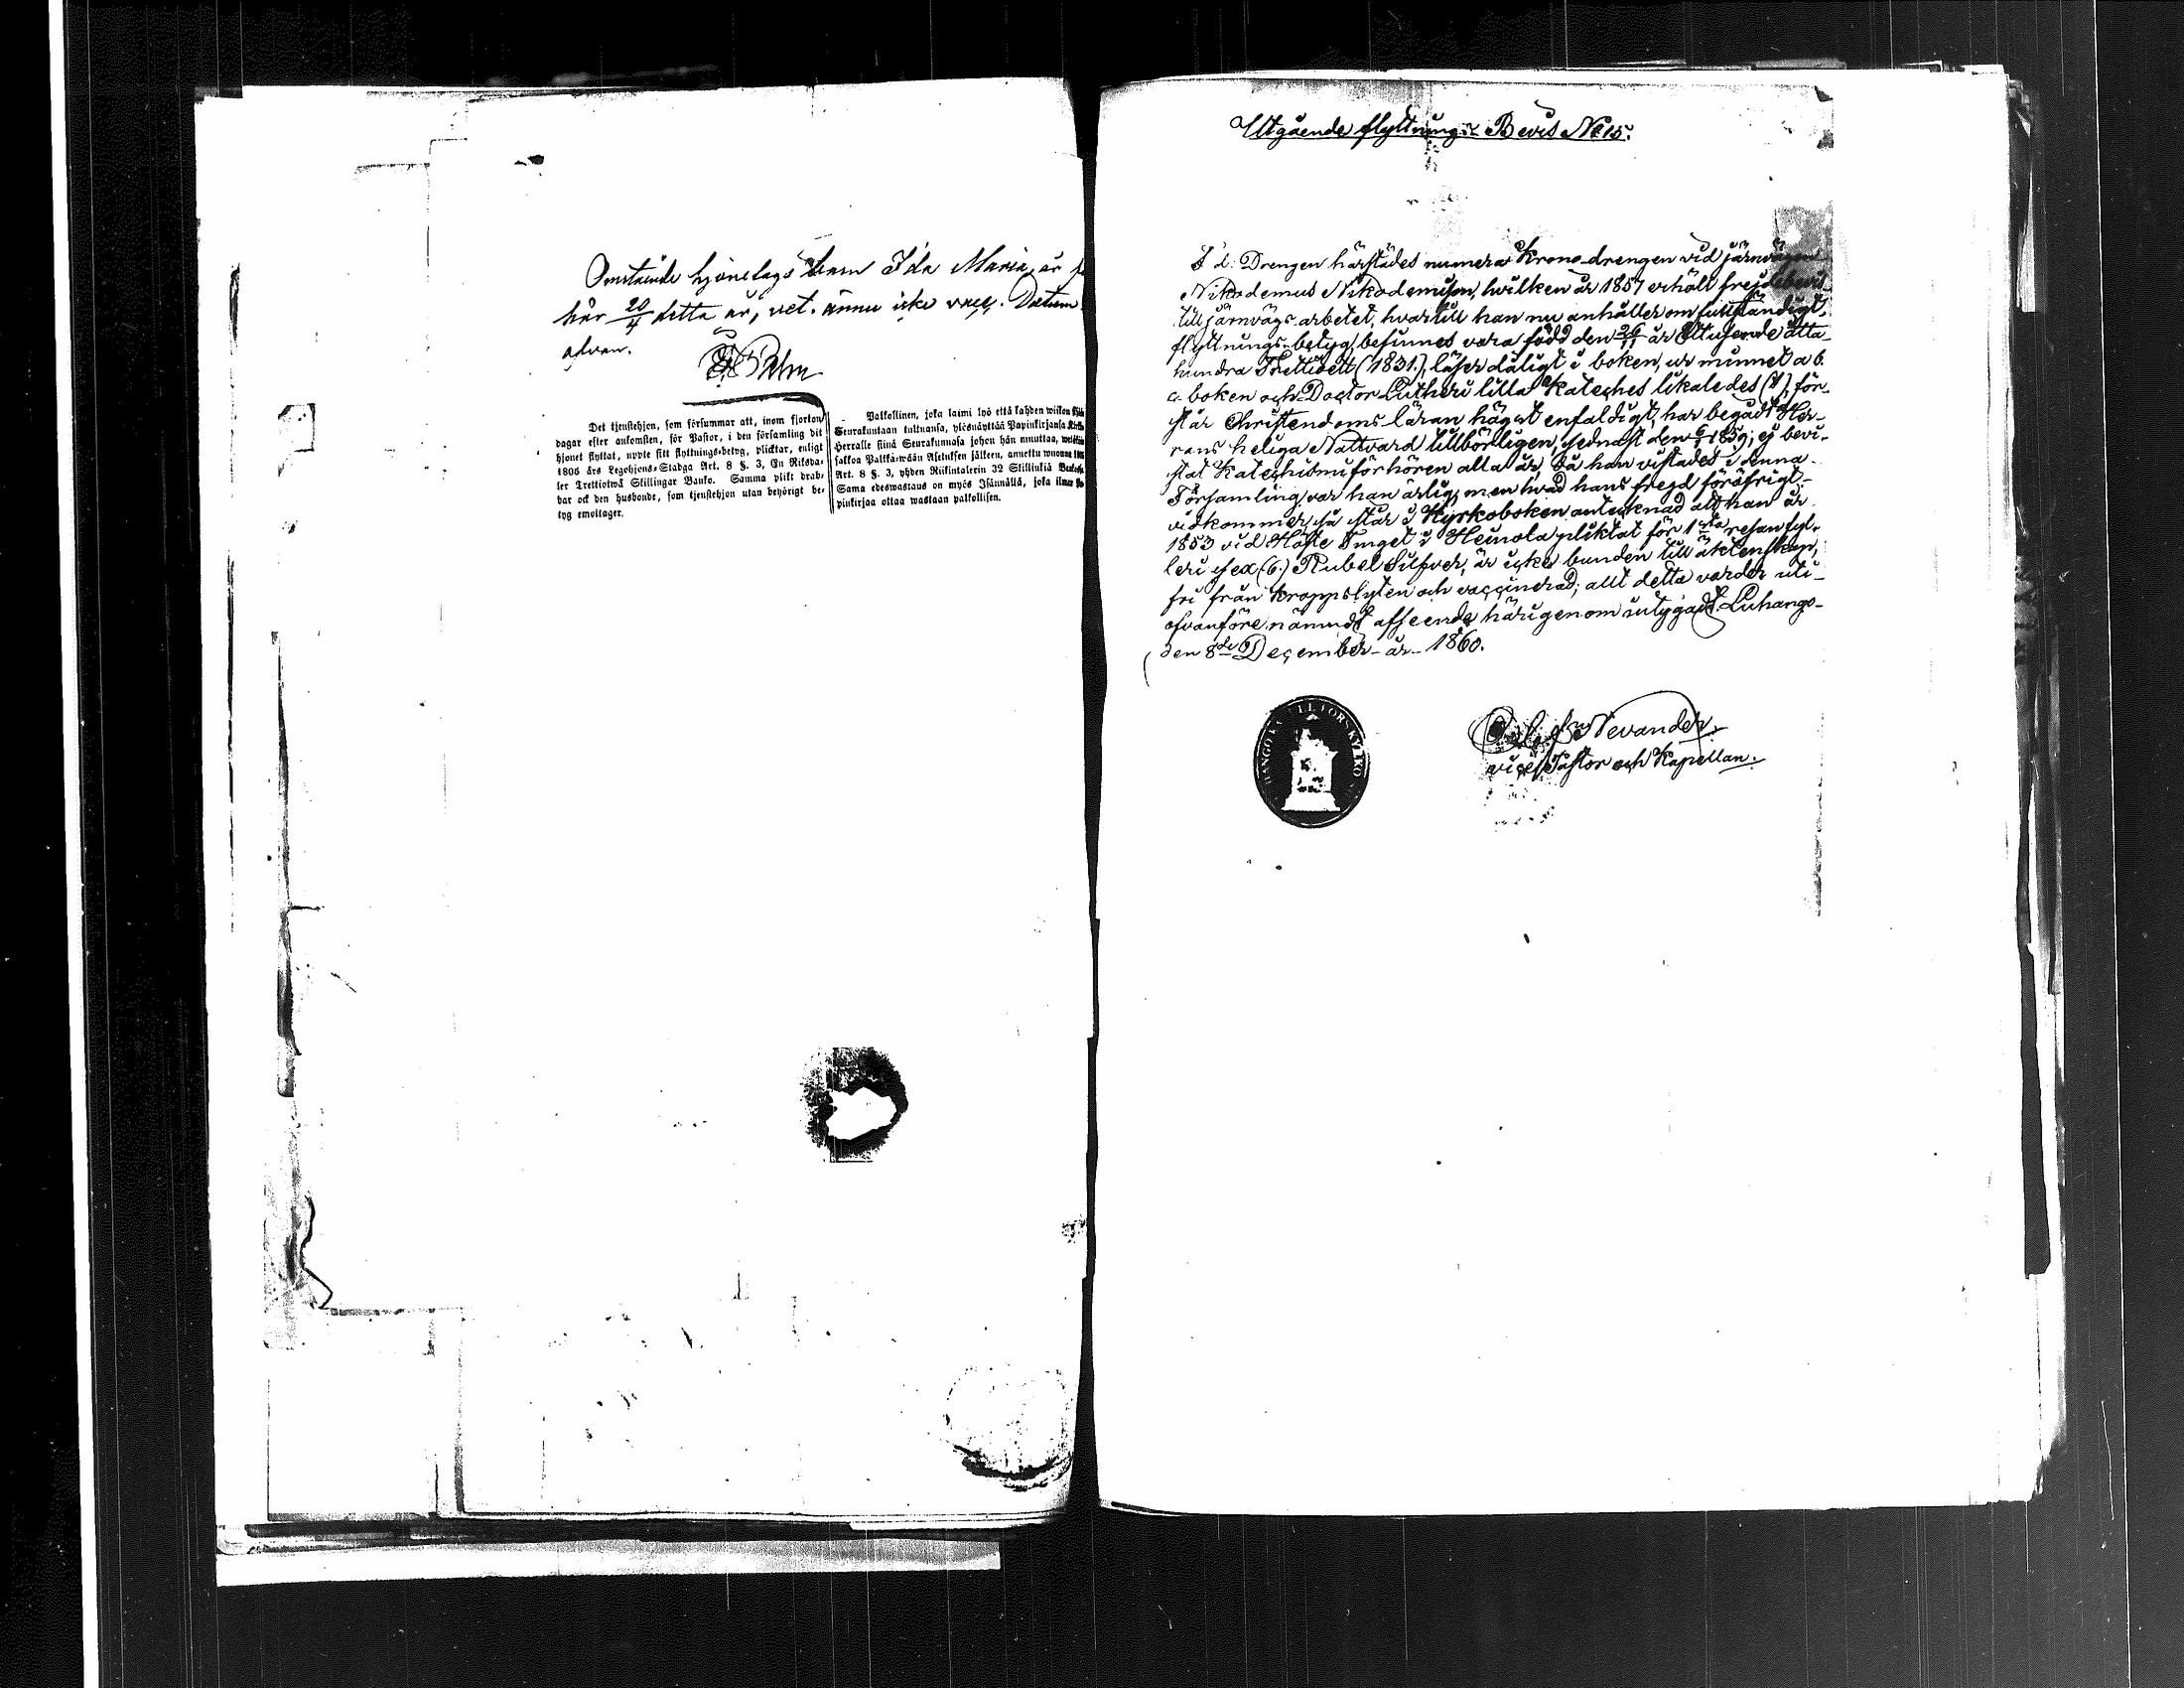 Omstående hjonelags barn Ida Maria, är
här 20/4 detta år, vet. ännu icke vacc. Datum
ofvan.
Palm
Det tjenstehjon, som försummar att, inom fjorton
dagar efter ankomsten, för Pastor, i den församling dit
hjonet flyttat, uppte sitt flyttnings-betyg, plicktar, enligt
1805 års Legohjons-Stadga Art. 8 §. 3, En Riksda-
ler Trettiotwå Skillingar Banko. Samma plikt drab-
bar ock den husbonde, som tjenstehjon utan behörigt be-
tyg emottager.
Palkollinen, joka laimi lyö että kahden wiikon
Seurakuntaan tultuansa, ylösnäyttää Papinkirjansa
Herralle siinä Seurakunnasa johon hän muuttaa,
sakkoa Palkka-wään Asetuksen jälkeen, annettu wuonna
Art. 8 §. 3, yhden Riikintalerin 32 Killinkiä
Sama edeswastaus on myös Isännällä, joka ilman
pinkirjaa ottaa wastaan palkollisen.
Utgående flyttnings- Bevis No 15.
F d. Drengen härstädes numera Krono-drengen vid järnvägen
Nikodemus Nikodemuson, hvilken år 1857 erhöll frejdebevis
till järnvägs-arbetet, hvartill han nu anhåller om fullständigt
flyttnings-betyg, befinnes vara född den 26/11 år Ettusende åtta-
hundra Trettioett (1831.), läser dåligt i boken, ur minnet a b.
c. boken och Doctor Lutheri lilla Kateches likaledes, för-
står Christendoms-läran högst enfaldigt, har begått Her-
rans heliga Nattvard tillbörligen, sednast den 1859; ej bevi-
stat Katechismiförhören alla år. Då han vistades i denna
Församling var han ärlig, men hvad hans frejd föröfrigt
vidkommer, så står i Kyrkoboken antecknad att han år
1853 vid Höste Tinget i Heinola pliktat för 1sta resan fyl-
leri sex (6.) Rubel Silfver, är icke bunden till äktenskap,
fri från kroppslyten och vaccinerad; allt detta varder uti
ofvanförenämndt afseende härigenom intygadt. Luhango
den 8de December år 1860.
Nevander.
vice Pastor och Kapellan.